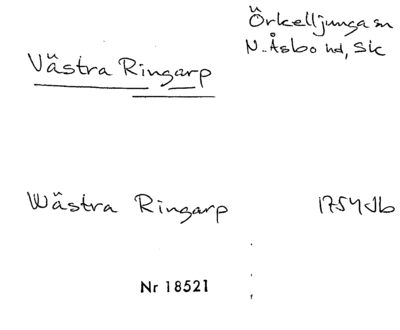 Örkelljunga sn
N. Åsbo hd, Sk
Västra Ringarp
Wästra Ringarp 1754 Jb
Nr 18521